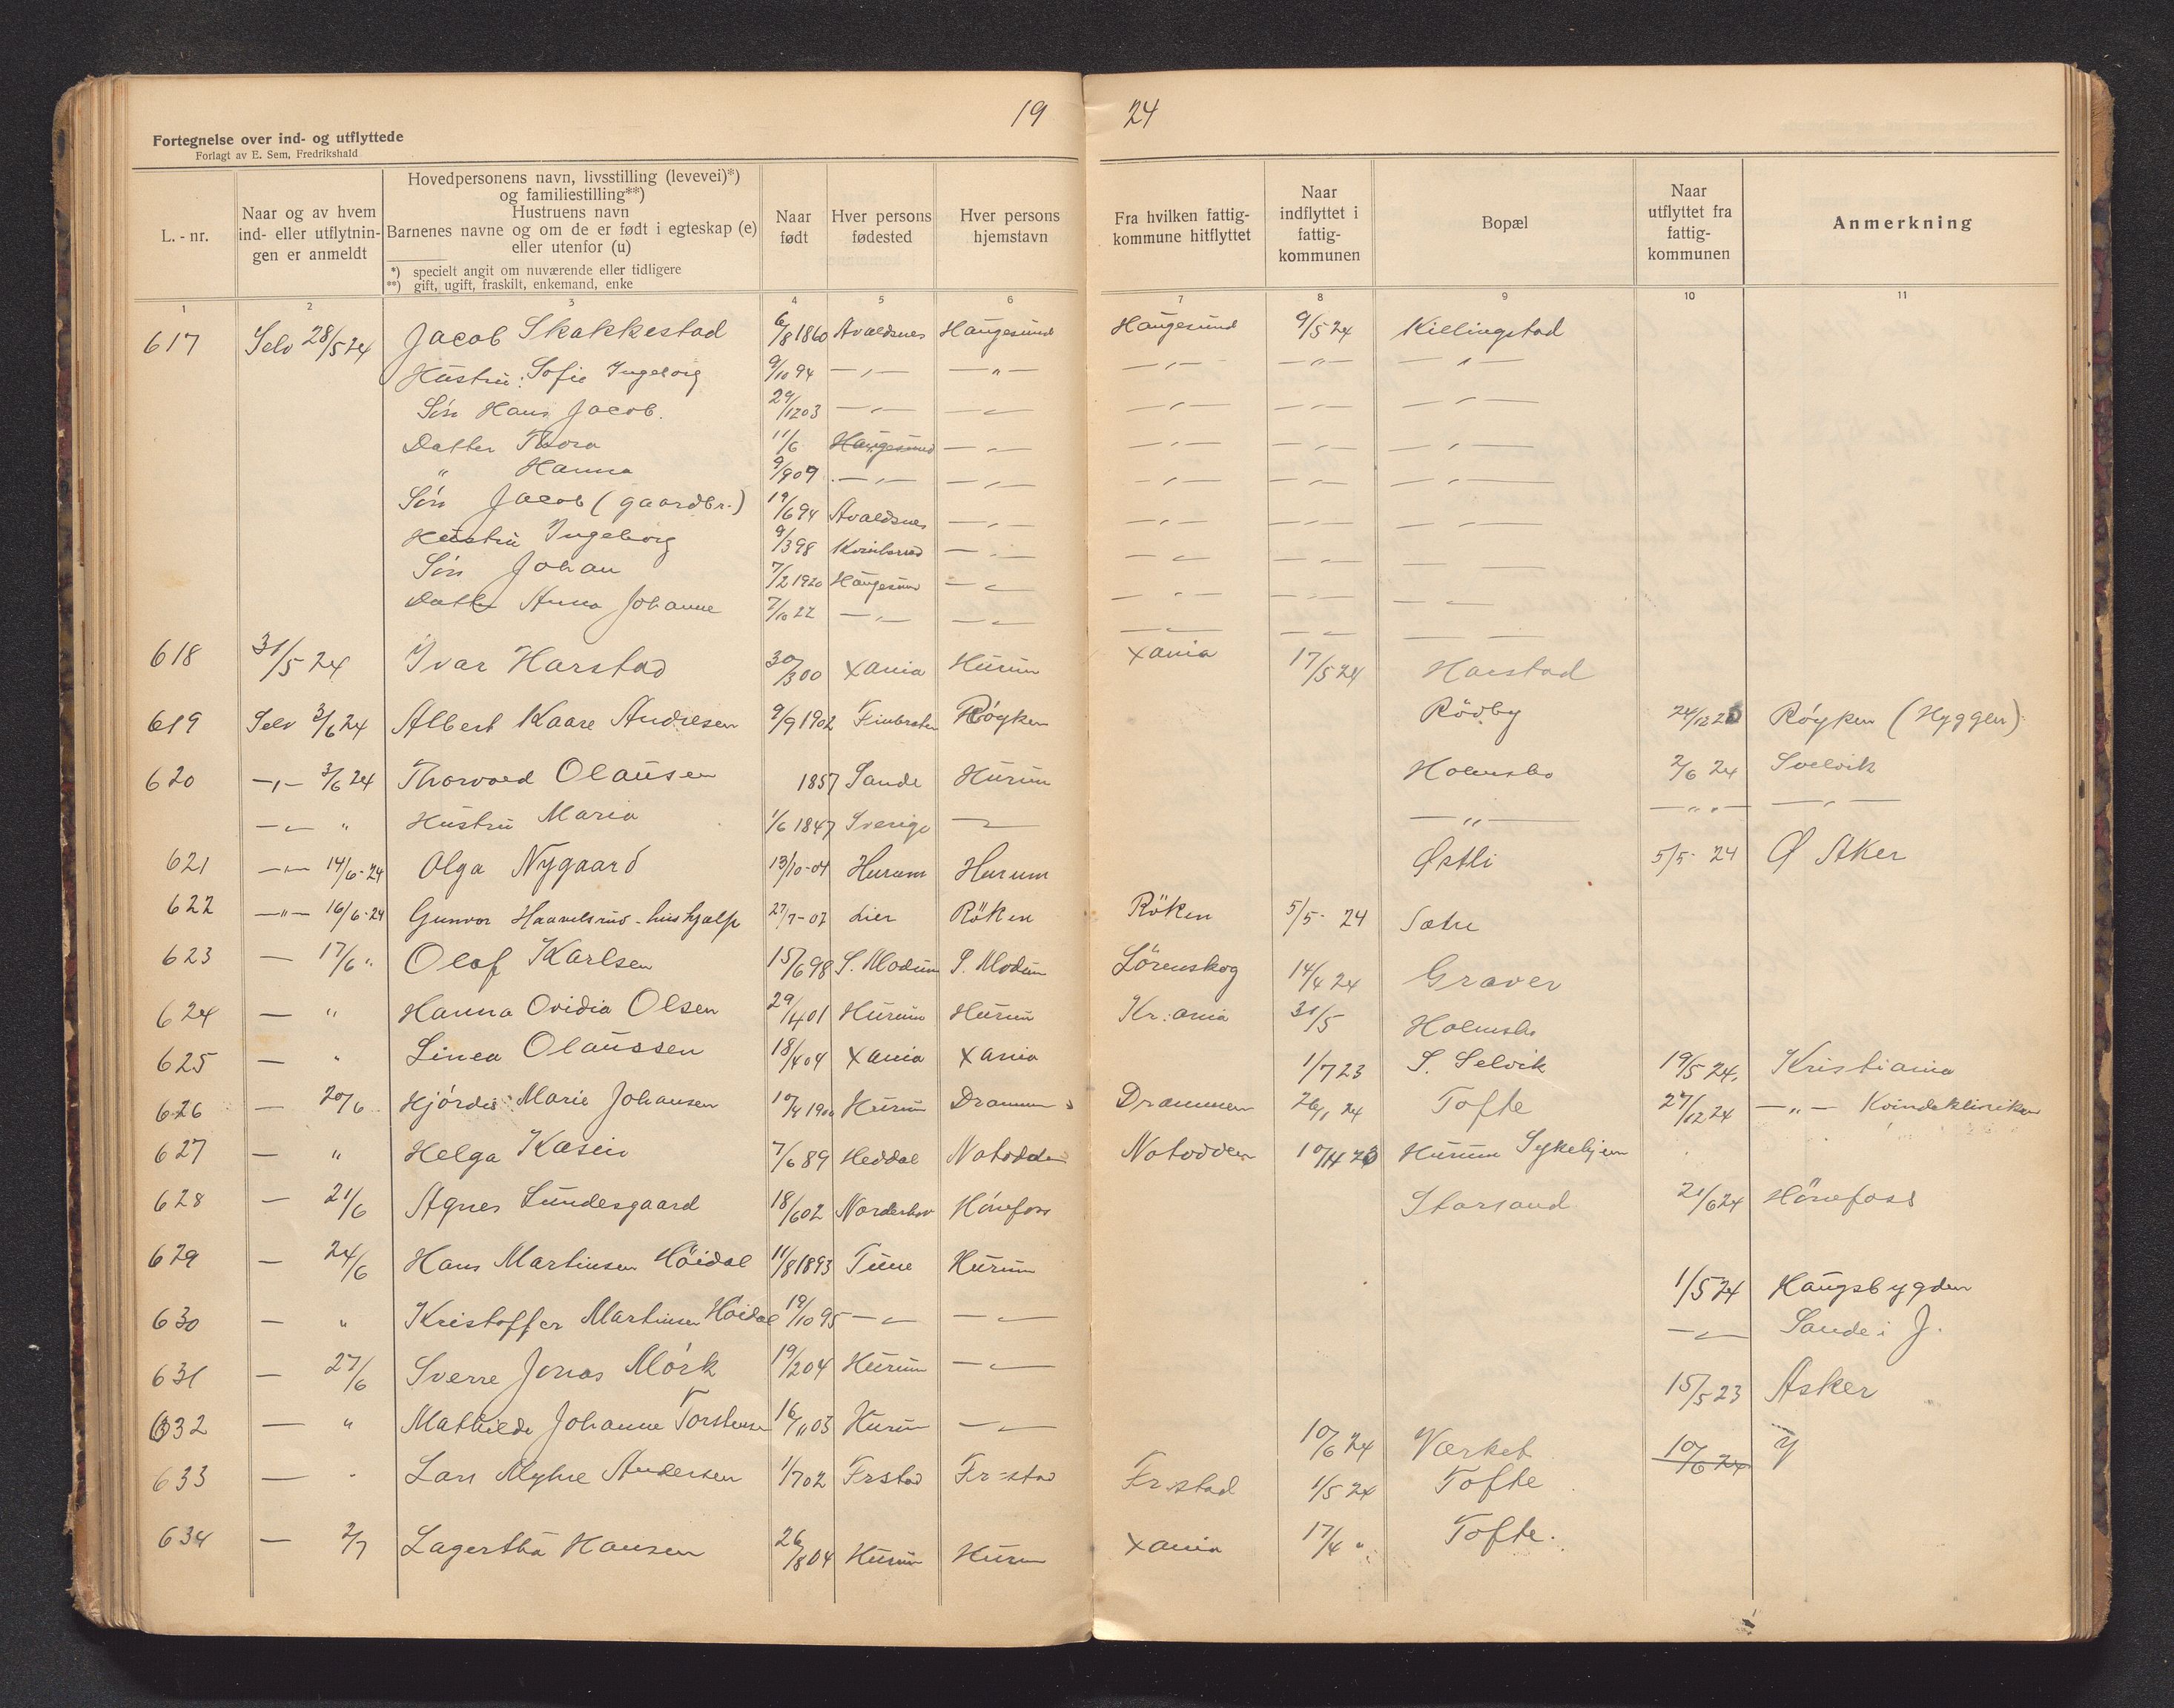 19 24
Fortegnelse over ind- og utflyttede
Forlagt av E. Sem, Fredrikshald
L.-nr.
Naar og av hvem ind- eller utflytningen er anmeldt
Hovedpersonens navn, livsstilling (levevei)*)
og familiestilling**)
Hustruens navn
Barnenes navne og om de er født i egteskap (e)
eller utenfor (u)
*) specielt angit om nuværende eller tidligere
**) gift, ugift, fraskilt, enkemand, enke
Naar født
Hver persons fødested
Hver persons hjemstavn
Fra hvilken fattig-kommune hitflyttet
Naar indflyttet i fattig-kommunen
Bopæl
Naar utflyttet fra fattig-kommunen
Anmerkning
1 2 3 4 5 6 7 8 9 10 11
617 Selv 28/5 24 Jacob Skakkestad 6/8 1860 Avaldsnes Haugesund Haugesund 9/5 24 Killingstad
Hustru: Sofie Ingeborg 9/10 94 — " — — " — — " — — " — — " —
Sön Hans Jacob. 29/12 03 — " — — " — — " — — " — — " —
Datter Thora 11/6 Haugesund — " — — " — — " — — " —
" Hanna 9/9 09 — " — — " — — " — — " — — " —
Sön Jacob (gaardbr.) 19/6 94 Avaldsnes — " — — " — — " — — " —
Hustru Ingeborg 9/3 98 — " — — " — — " — — " —
Sön Johan 7/2 1920 Haugesund — " — — " — — " — — " —
Datter Anna Johanne 7/10 22 — " — — " — — " — — " — — —
618 31/5 24 Ivar Harstad 30/3 00 Xania Hurum Xania 17/5 24 Harstad
619 Selv 3/6 24 Albert Kaare Andresen 9/9 1902 Röyken Rödby 24/12 25 Röyken (Hyggen)
620 — " — 3/6 24 Thorvald Olausen 1857 Sande Hurum Holmsbo 2/6 24 Svelvik
— " — " Hustru Maria 1/6 1847 Sverige — " — — " — — " — — " —
621 — " — 14/6-24 Olga Nygaard 13/10-04 Hurum Hurum Østli 5/5- 24 Ø Aker
622 — " — 16/6-24 Gunvor Haavelsrud - hushjælp 27/7-07 Lier Röken Röken 5/5- 24 Sætre
623 — 17/6 " Olaf Karlsen 15/6 98 S. Modum S. Modum Lörenskog 14/4 24 Graver
624 — " Hanna Ovidia Olsen 29/4 01 Hurum Hurum Kr:ania 31/5 Holmsbo
625 — " Linea Olaussen 18/4 04 Xania Xania 1/7 23 S. Selvik 19/5 24. Kristiania
626 — 20/6 Hjördis Marie Johansen 10/4 1900 Hurum Drammen Drammen 26/1 24 Tofte 27/12 24 — " — Kvindeklinikken
627 — " Helga Kasein 7/6 89 Heddal Notodden Notodden 10/4 23 Hurum Sykehjem
628 — 21/6 Agnes Lundesgaard 18/6 02 Norderhov Hönefoss Storsand 21/6 24 Hönefoss
629 — 24/6 Hans Martinsen Höidal 11/8 1893 Tune Hurum 1/5 24 Haugsbygden
630 — " Kristoffer Martinsen Höidal 19/10 95 — " — — " — — " — Sande i J.
631 — 27/6 Sverre Jonas Mörk 19/2 04 Hurum — " — 15/5 23 Asker
632 — " Mathilde Johanne Torstensen 16/11 03 Hurum — " — 10/6 24 Værket 10/6 24
633 — " Lars Myhre Andersen 1/7 02 Frstad Fr:stad Fr:stad 1/5 24 Tofte
634 — 2/7 Lagertha Hansen 26/8 04 Hurum Hurum Xania 17/4 " Tofte.